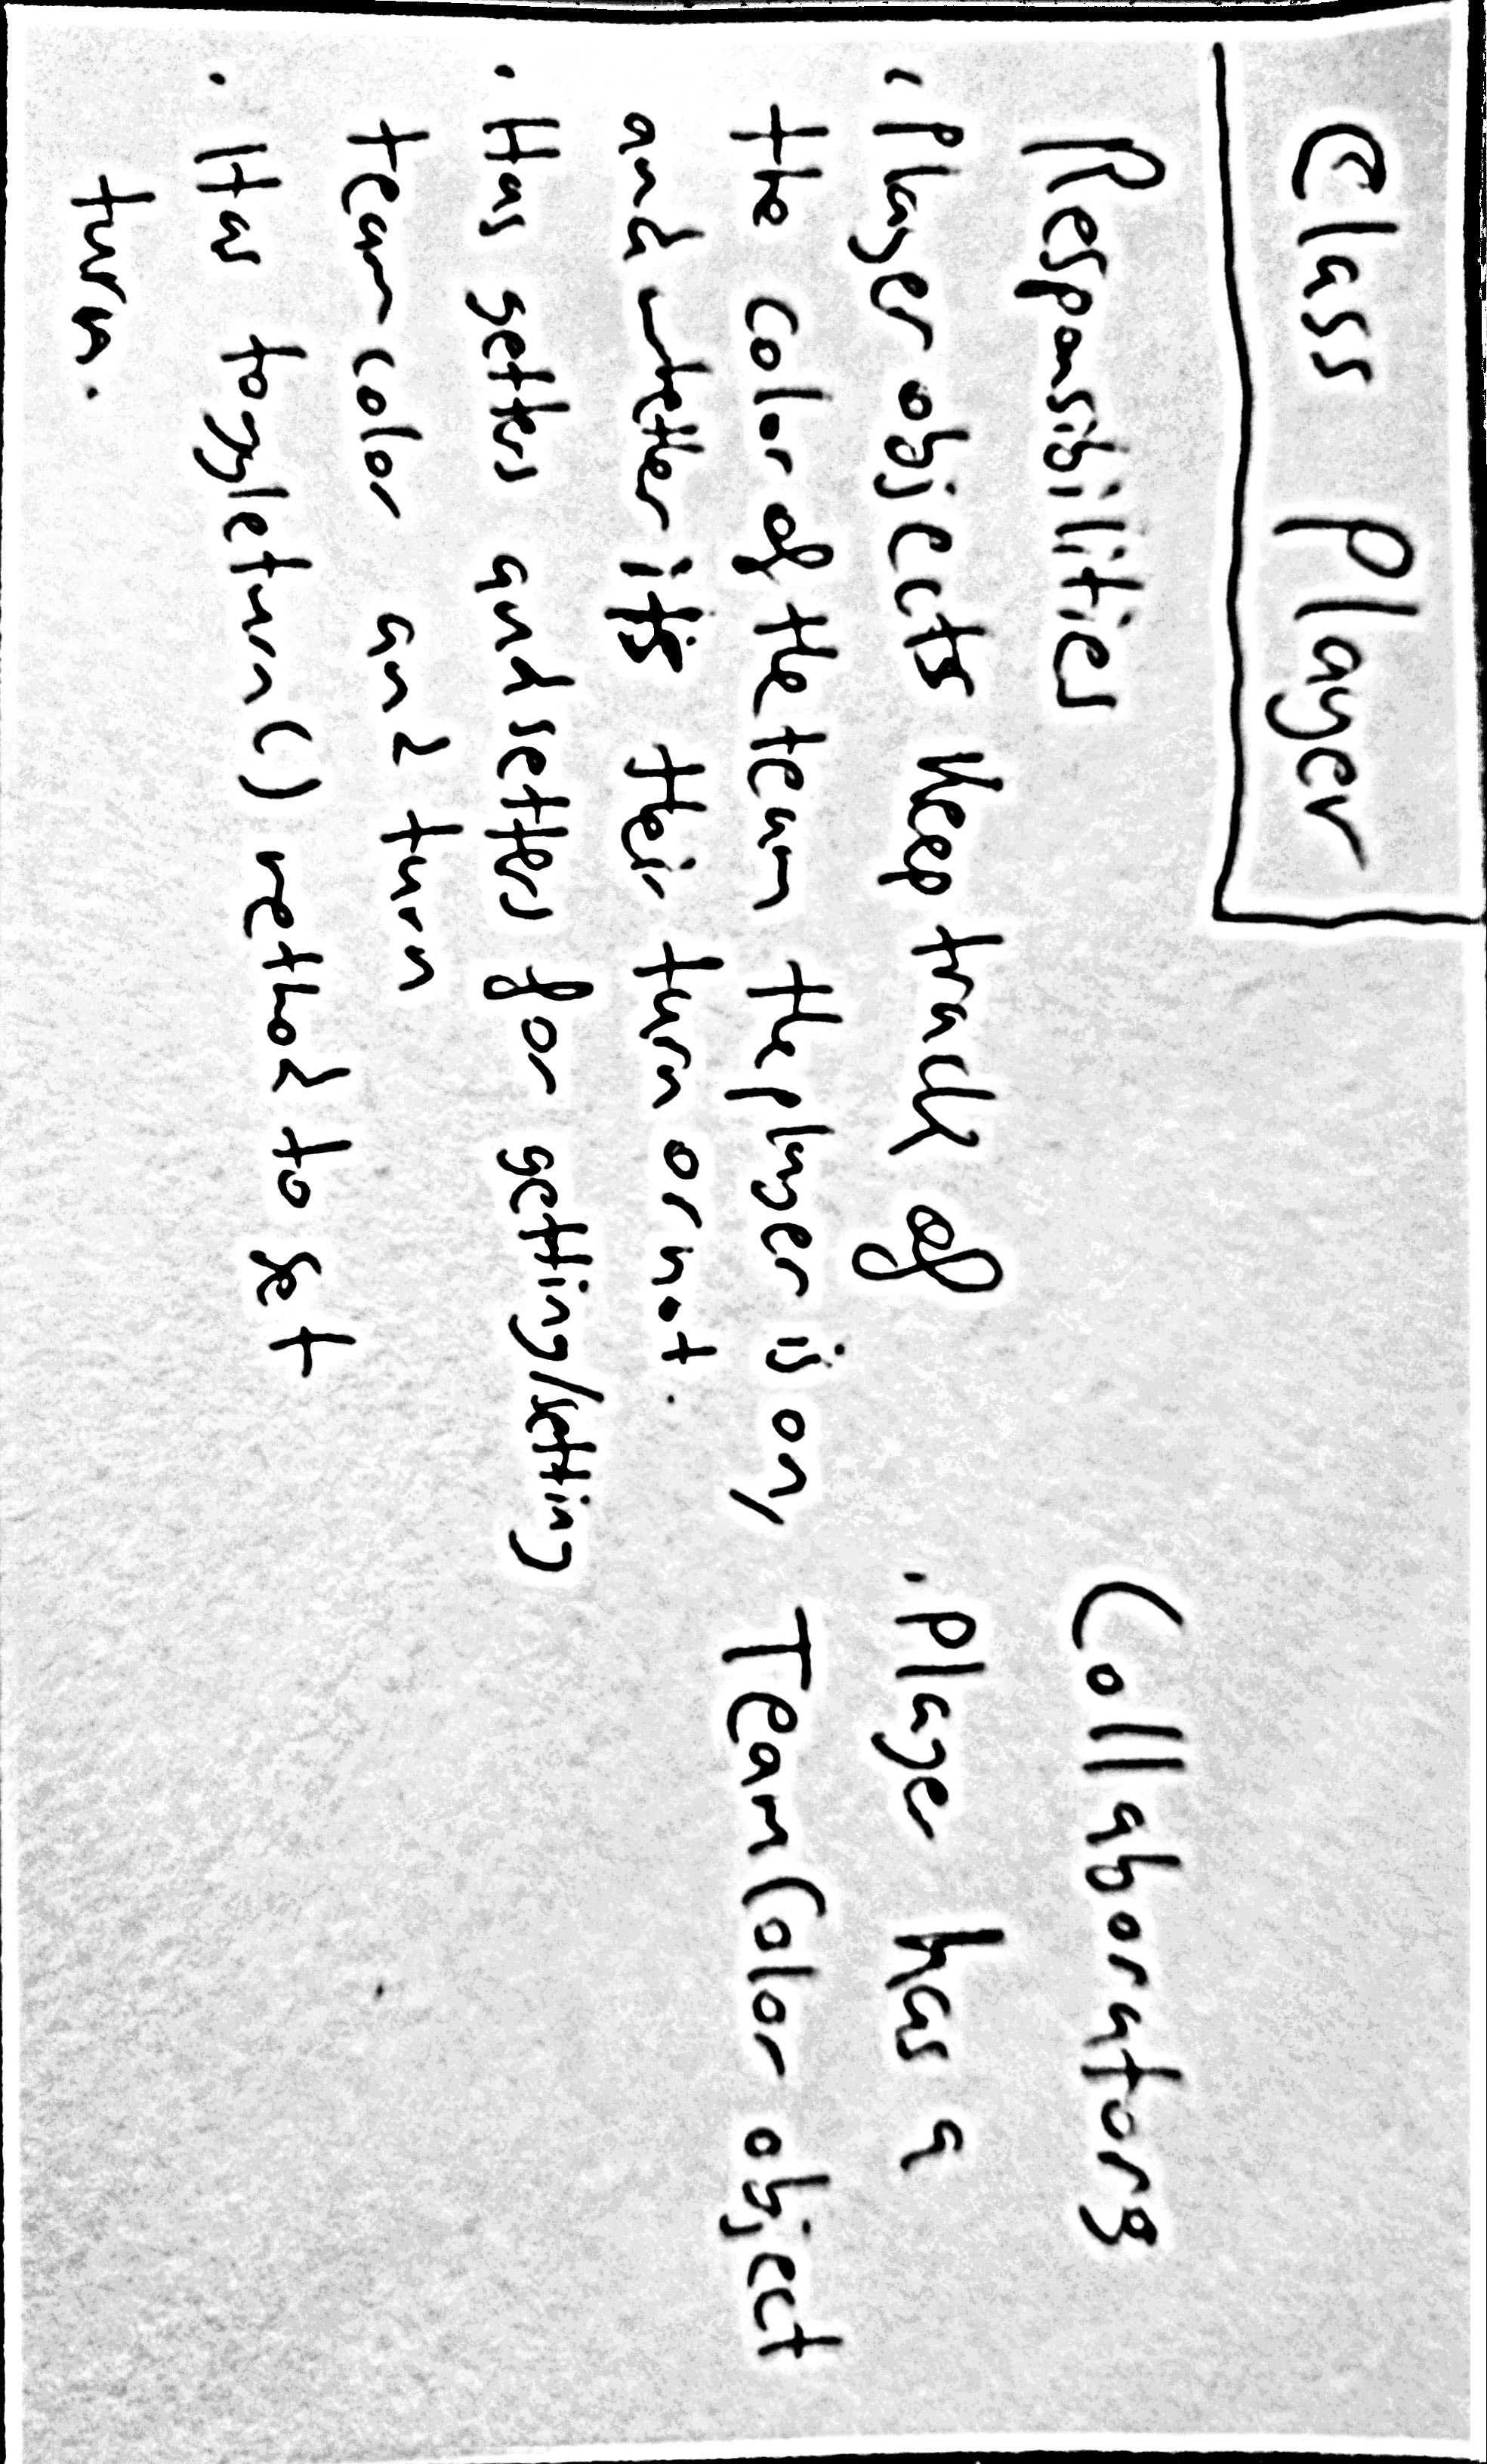 Class Player
Responsibilities
· Player objects keep track of
the color of the team the player is on,
and whether it's their turn or not.
· Has getters and setters for getting/setting
team color and turn
· Has toggleturn() method to set
turn.
Collaborators
· Player has a
TeamColor object